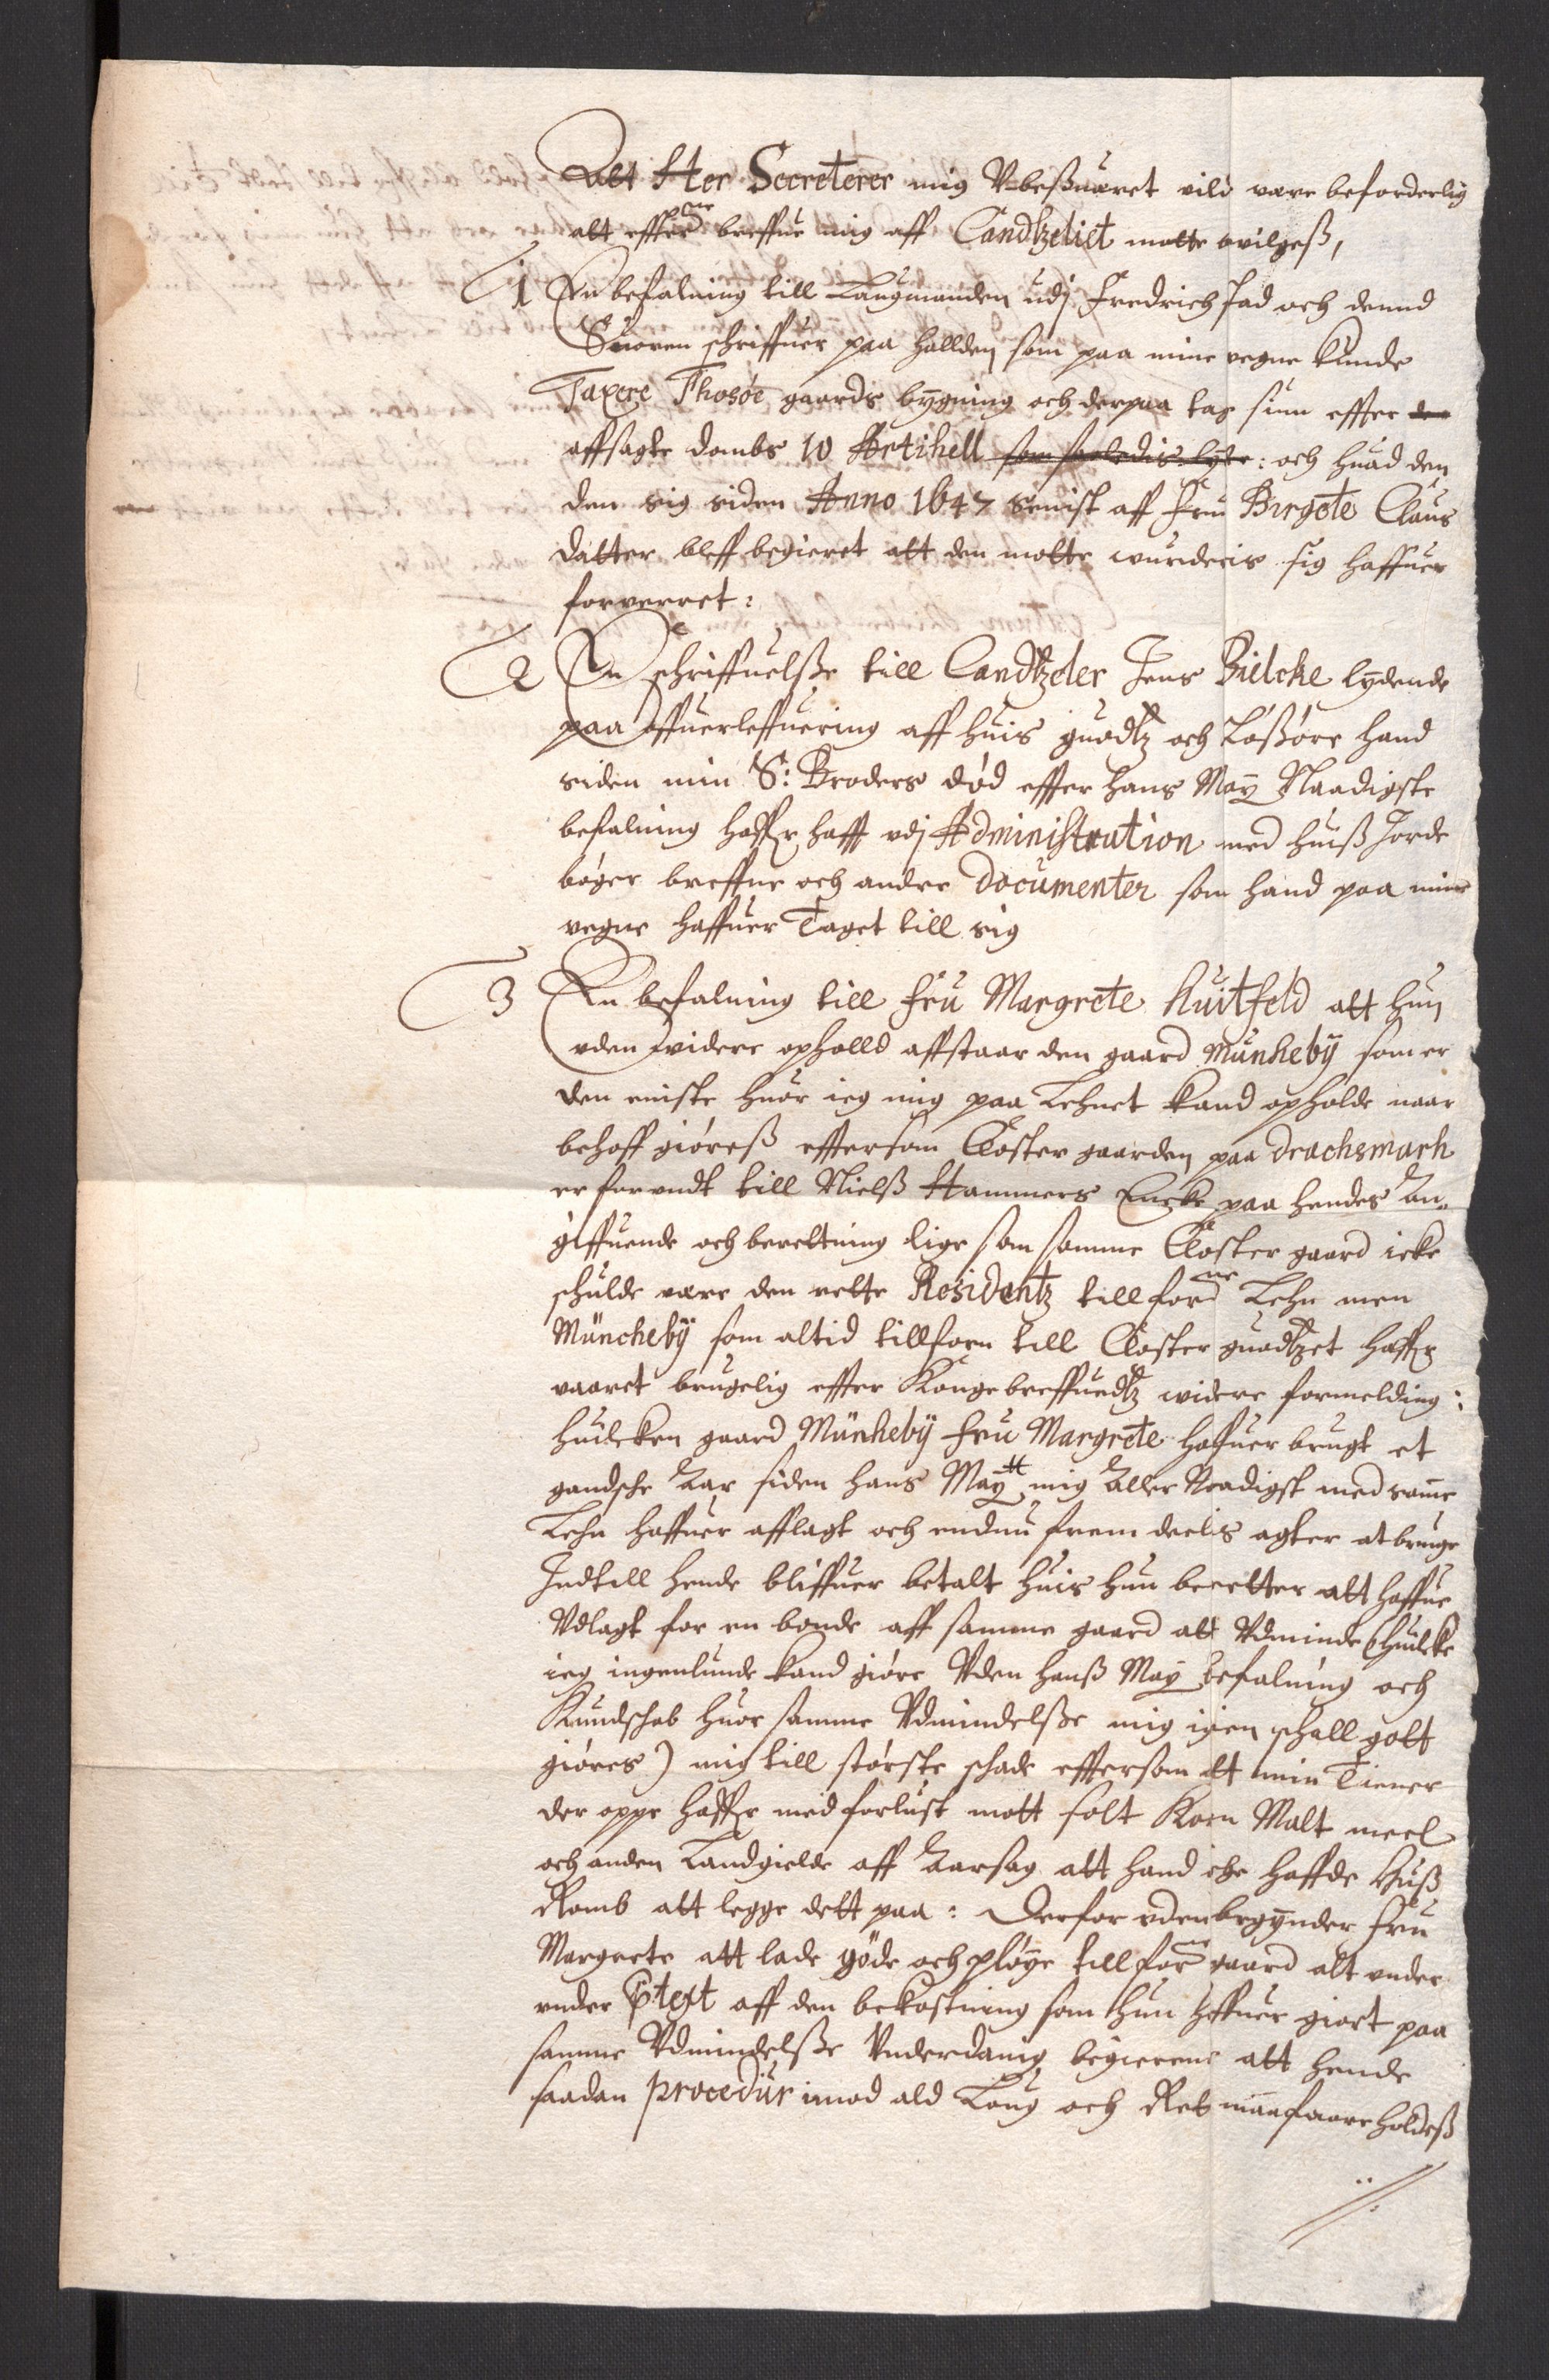 Att Her Secreterer mig Vbeßuæret vild være beforderlig
att effterne breffue mig aff Candtzeliet motte bevilgeß,
1 En befalning till Laugmanden udj Fredrichstad och dennd
Suoren schriffuer paa Hallden som paa mine vegne kunde
Taxere Thosøe gaards bygning och derpaa tag siun effter den
affsagte dombs 10 Artihell som saaledis lyder: och huad den
den sig siden Anno 1647 senist aff Fru Birgete Claus
datter bleff begieret att den motte wurderis sig haffuer
forverret:
2 En schriffuelsße till Candtzeler Jens Bielcke lydende
paa offuerleffuering aff huis guodtz och Løßøre hand
siden min S: Broders død effter hans May Naadigste
befalning haffr hafft udj Administration med huiß Jorde
bøger breffue och andre documenter som hand paa mine
vegne haffuer Taget till sig
3 En befalning till fru Margrete Huitfeld att hun
uden widere ophold affstaar den gaard Munkeby som er
den eniste huor ieg mig paa Lehnet kand opholde naar
behoff giøreß effter som Closter gaarden paa Drachsmarh
er forundt till Nielß Hammers Encke paa hendes An„
giffuende och berettning lige som samme Closter gaard icke
schulde være den rette Residentz till forne Lehn men
Müncheby som altid tillforn till Closter guodtzet haffr
vaaret brugelig effter Kongebreffuedtz widere formelding:
huilcken gaard Münkeby fru Margrete haffuer brugt et
gandsche Aar siden hans Maytt mig Aller Naadigst med samme
Lehn haffuer afflagt och endnu frem deelis agter at bruge
Indtill hende bliffuer betalt huis hun beretter att haffue
Vdlagt for en bonde aff samme gaard att Vdminde (huilcke
ieg ingenlunde kand giøre Vden hanß May befalning och
Kundschab huor samme Vdmindelsße mig igien schall gott
giøres) mig till største schade effter som att min Tiener
der oppe haffr med forlust mott solt Korn Malt meel
och anden Landgielde aff Aarsag att hand iche haffde Huß
Romb att legge dett paa: Derfor uden begynder fru
Margrete att lade gøde och pløye till forne gaard alt under
under Ptext aff den bekostning som hun haffuer giort paa
samme Vdmindelsße Vnderdanig begierene att hende
saadan procedur imod ald Loug och Ret maa forre holdeß